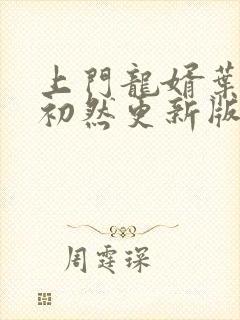 上門龍婿葉
初然更新版
周霆琛